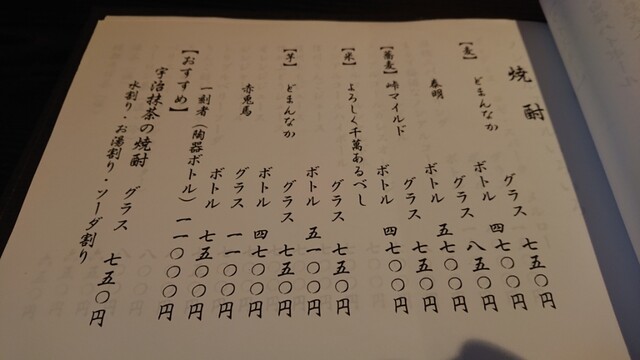 焼酎
【麦】どまんなか グラス 七五〇円
ボトル 四七〇〇円
泰明 グラス 八五〇円
ボトル 五七〇〇円
【蕎麦】峠マイルド グラス 七五〇円
ボトル 四七〇〇円
【米】よろしく千萬あるべし グラス 七五〇円
ボトル 五一〇〇円
【芋】どまんなか グラス 七五〇円
ボトル 四七〇〇円
赤兎馬 グラス 一一〇〇円
ボトル 七五〇〇円
一刻者(陶器ボトル) 一一〇〇〇円
【おすすめ】
宇治抹茶の焼酎 グラス 七五〇円
水割り・お湯割り・ソーダ割り